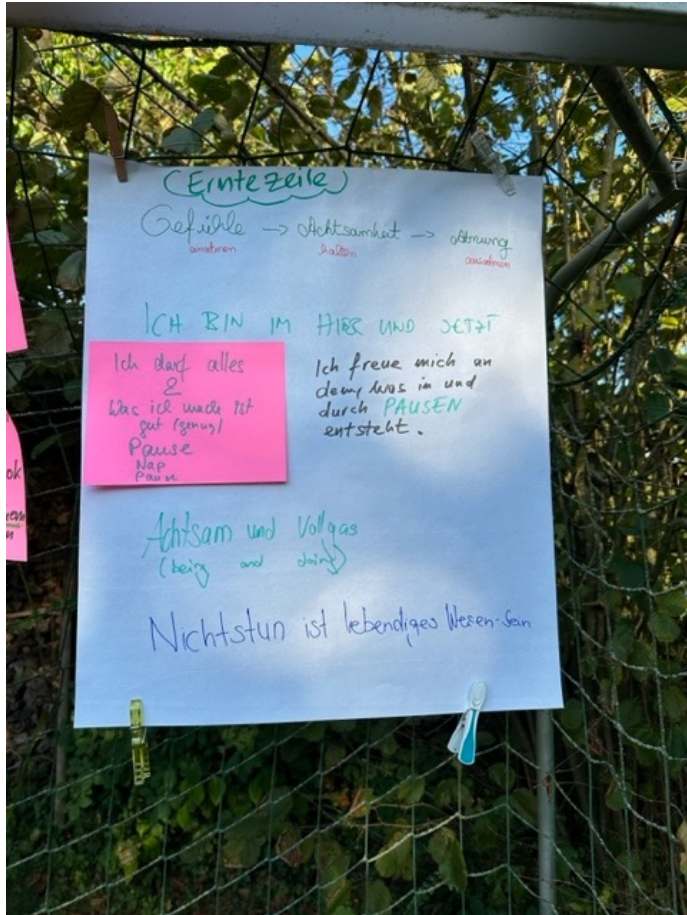 (Erntezeile)
Gefühle → Achtsamkeit → Atmung
annehmen halten ausatmen
ICH BIN IM HIER UND JETZT
Ich darf alles
&
Was ich mache ist
gut (genug)
Pause
Nap
Pause
Ich freue mich an
dem, was in und
durch PAUSEN
entsteht.
Achtsam und Vollgas
(being and doing)
Nichtstun ist lebendiges Wesen-Sein
ok